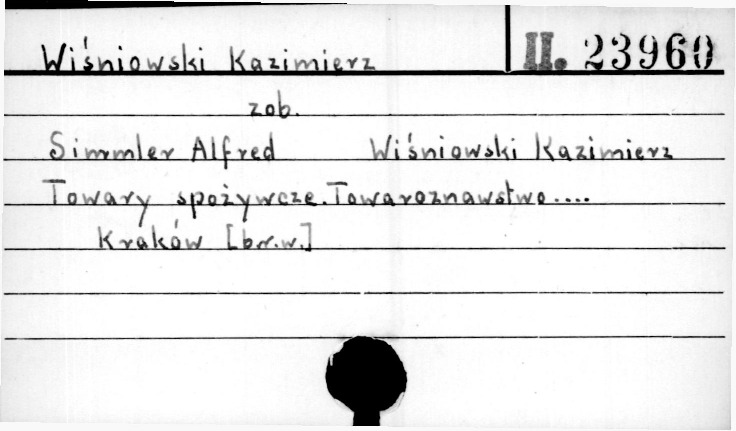 Wiśniowski Kazimierz II. 23960
zob.
Simmler Alfred Wiśniowski Kazimierz
Towary spożywcze. Towaroznawstwo....
Kraków [b.r.w.]